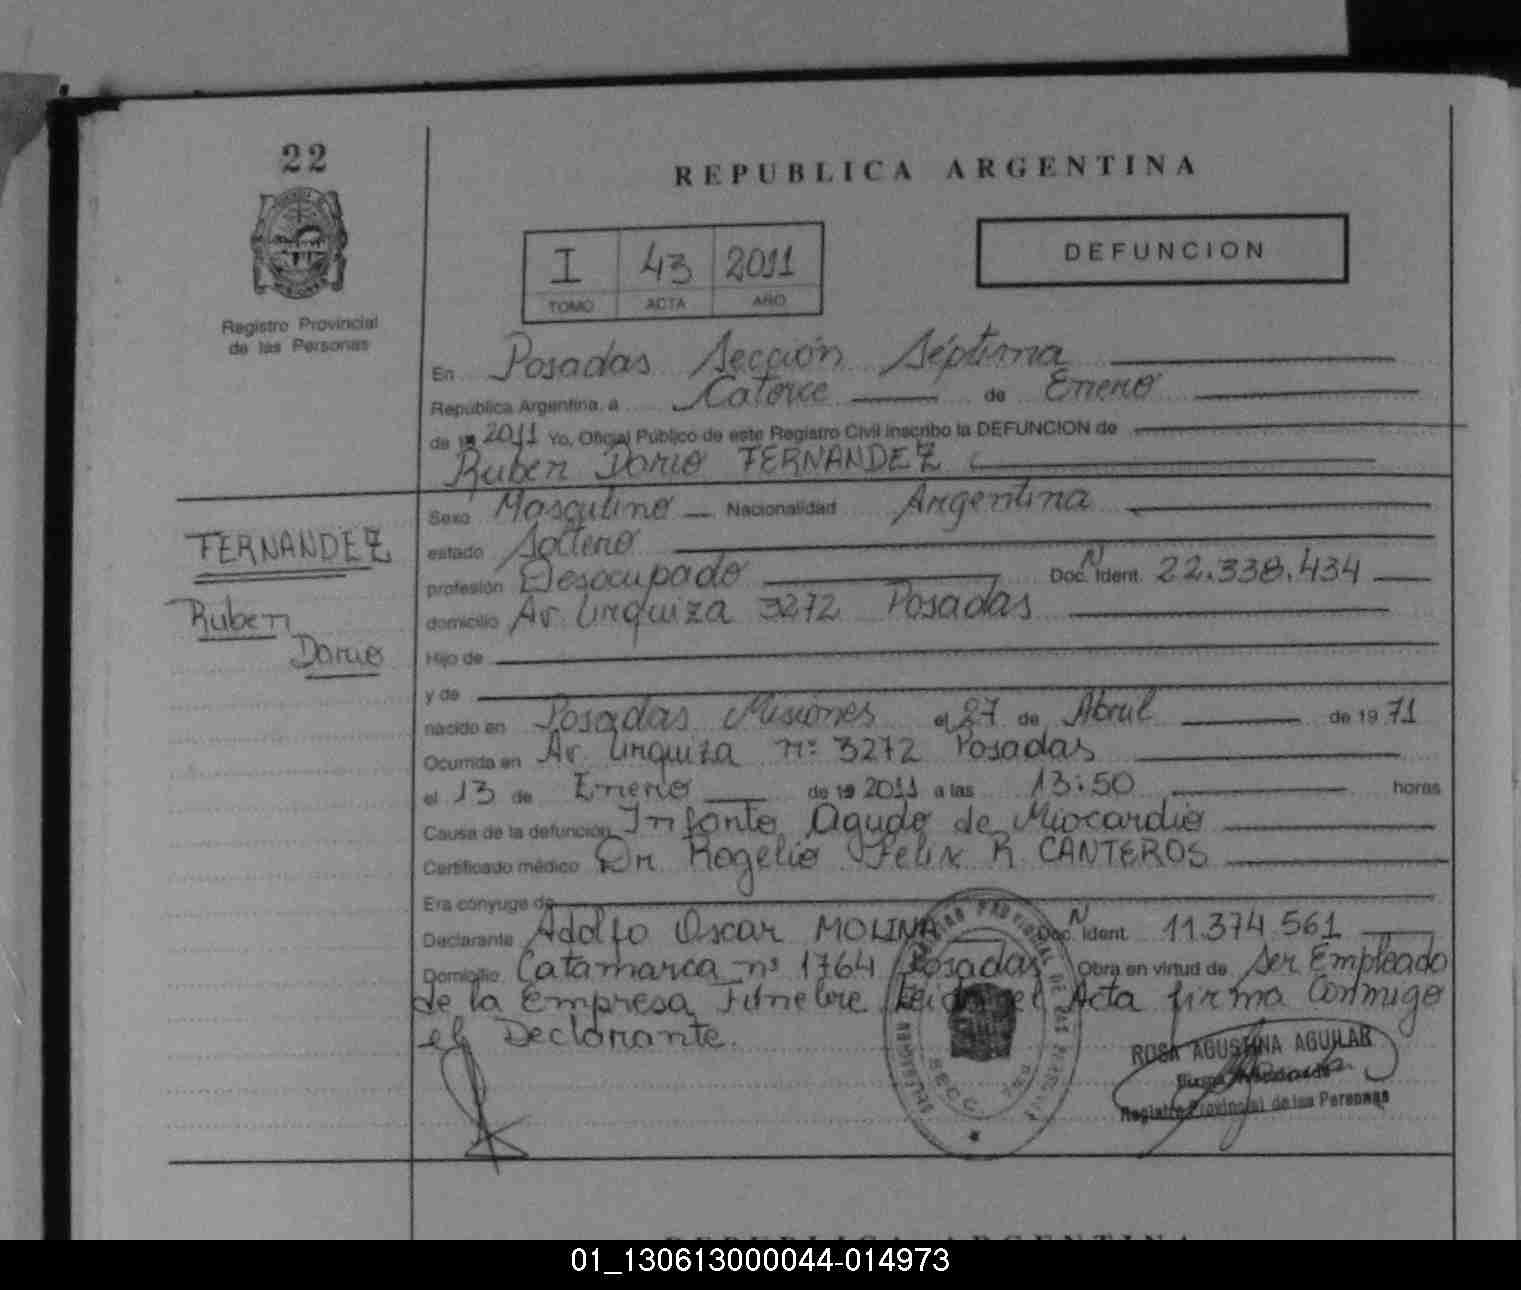 22
REPUBLICA ARGENTINA
I 43 2011
TOMO ACTA AÑO
DEFUNCION
Registro Provincial
de las Personas
En Posadas Sección Séptima
República Argentina, a Catorce de Enero
de 19 2011 Yo, Oficial Público de este Registro Civil inscribo la DEFUNCION de
Ruben Dario FERNANDEZ
FERNANDEZ
Ruben
Dario
Sexo Masculino Nacionalidad Argentina
estado Soltero
profesión Desocupado Doc. N Ident. 22.338.434
domicilio Av. Urquiza 3272 Posadas
Hijo de
y de
nacido en Posadas Misiones el 27 de Abril de 19 71
Ocurrida en Av. Urquiza nº 3272 Posadas
el 13 de Enero de 19 2011 a las 13:50 horas
Causa de la defunción Infarto Agudo de Miocardio
Certificado médico Dr Rogelio Felix R. CANTEROS
Era cónyuge de
Declarante Adolfo Oscar MOLINA Doc. N Ident. 11.374.561
Domicilio Catamarca nº 1764 Posadas Obra en virtud de Ser Empleado
de la Empresa Funebre Leida el Acta firma Conmigo
el Declarante.
ROSA AGUSTINA AGUILAR
Registro Provincial de las Personas
REPUBLICA ARGENTINA
01_130613000044-014973